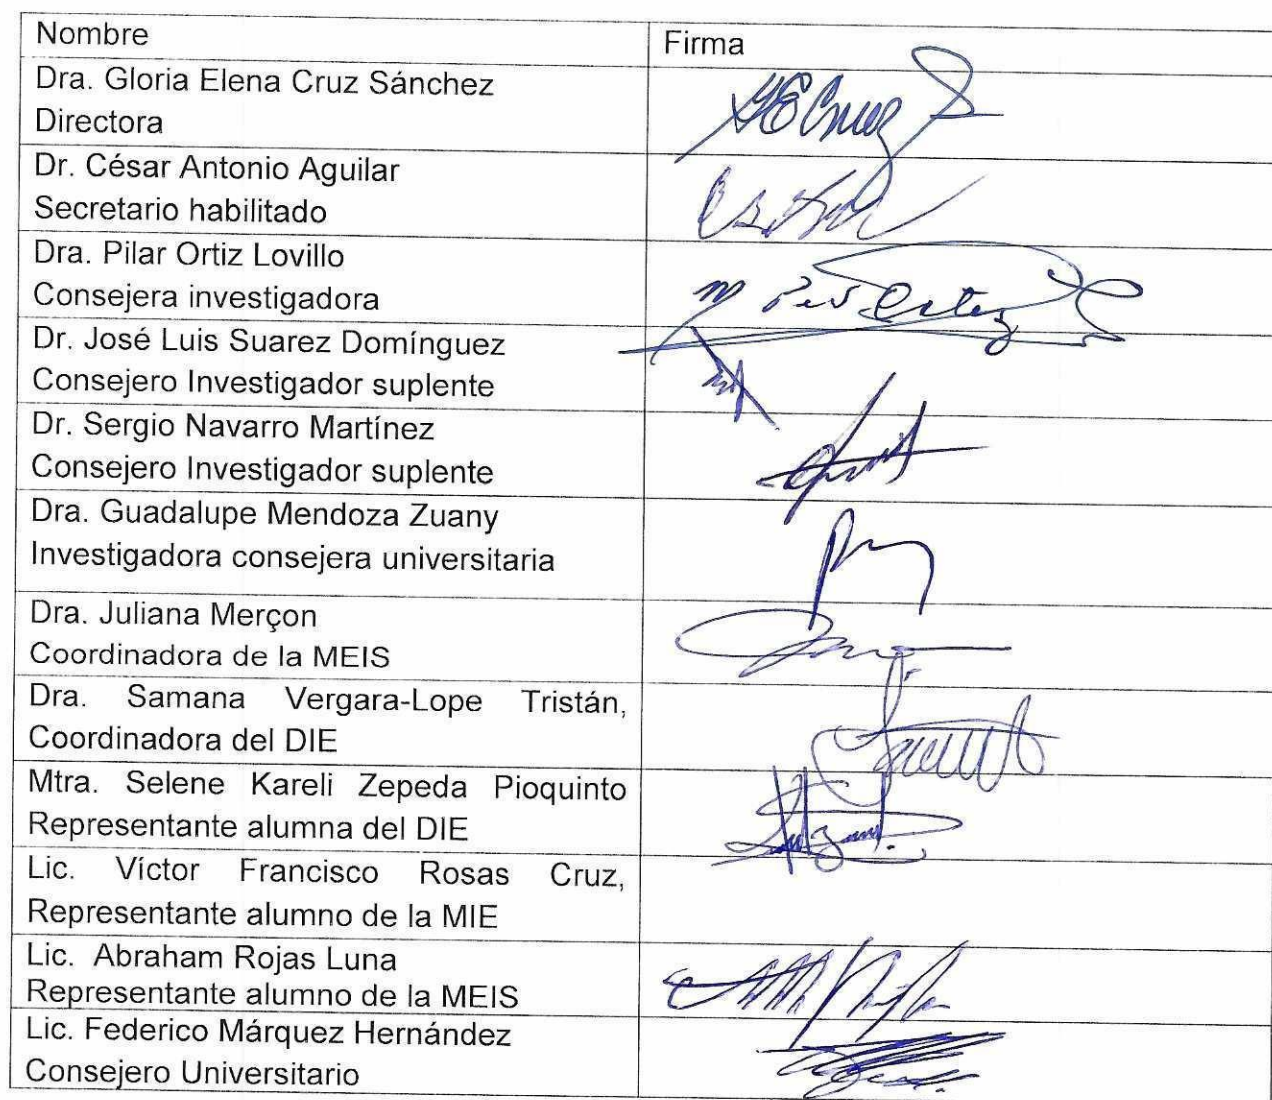 Nombre
Firma
Dra. Gloria Elena Cruz Sánchez
Directora
GECruz S
Dr. César Antonio Aguilar
Secretario habilitado
Dra. Pilar Ortiz Lovillo
Consejera investigadora
Dr. José Luis Suarez Domínguez
Consejero Investigador suplente
Dr. Sergio Navarro Martínez
Consejero Investigador suplente
Dra. Guadalupe Mendoza Zuany
Investigadora consejera universitaria
Dra. Juliana Merçon
Coordinadora de la MEIS
Dra. Samana Vergara-Lope Tristán,
Coordinadora del DIE
Mtra. Selene Kareli Zepeda Pioquinto
Representante alumna del DIE
Lic. Víctor Francisco Rosas Cruz,
Representante alumno de la MIE
Lic. Abraham Rojas Luna
Representante alumno de la MEIS
Lic. Federico Márquez Hernández
Consejero Universitario